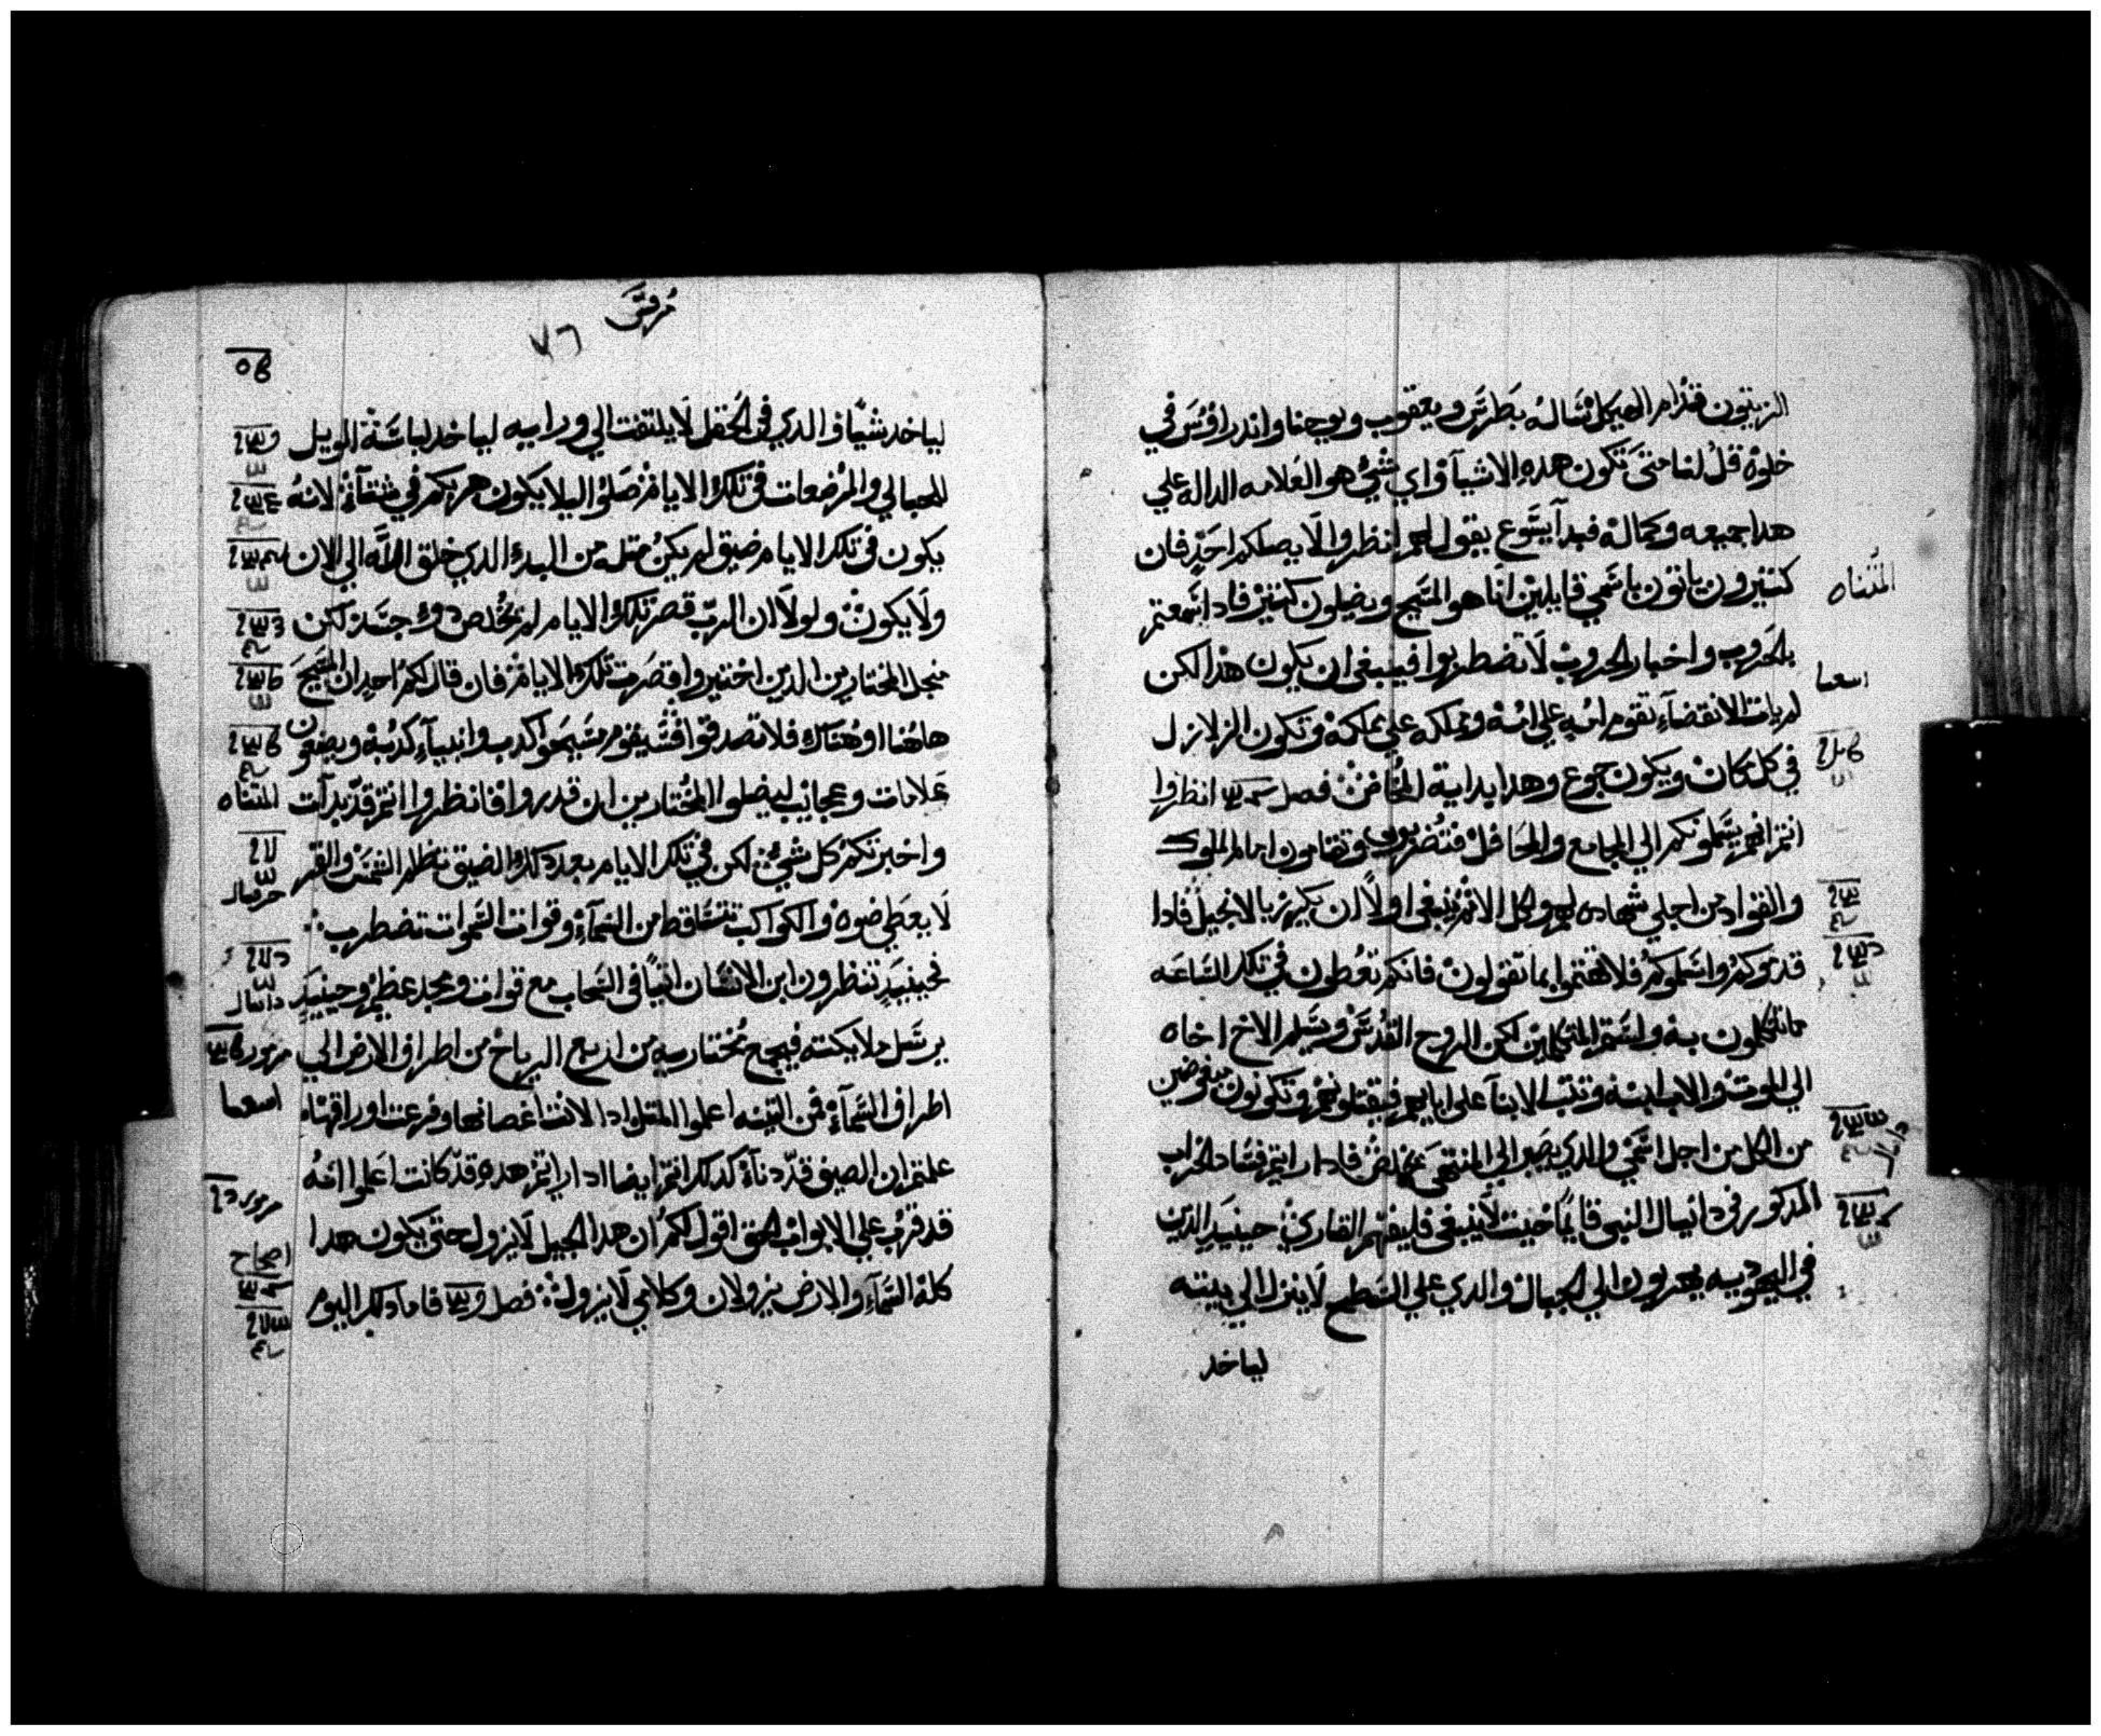 الزيتون قدام الهيكل نساله بطرس ويعقوب ويوحنا واندراوس في
خلوة قل لنا متى تكون هده الاشيآ واي شيء هو العلامه الداله علي
هدا جميعه وكماله فبدآ يسوع يقول لهم انظروا لا يضلكم احد فان
كتيرون ياتون باسمي قايلين انا هو المسيح ويضلون كتير فادا سمعتم
المثناه
بالحروب واخبار الحروب لا تضطربوا فينبغي ان يكون هدا لكن
اسعيا
لم يات الانقضآء تقوم امه علي امه ومملكه علي مملكه وتكون الزلازل
في كل مكان ويكون جوع وهدا بداية المخاض فصل انظروا
انتم انهم يسلمونكم الي المجامع والمحافل فتضربون وتقامون امام الملوك
والقواد من اجلي شهاده لهم ولكل الامم ينبغي اولا ان يكرز بالانجيل فادا
قدموكم واسلموكم فلا تهتموا بما تقولون فانكم تعطون في تلك الساعه
ماتتكلمون به ولستم المتكلمين لكن الروح القدس ويسلم الاخ اخاه
الي الموت والاب ابنه وتثب الابنآ علي ابايهم فيقتلونهم وتكونون مبغوضين
من الكل من اجل اسمي والدي يصبر الي المنتهى يخلص فادا رايتم فساد الخراب
المدكور في دانيال النبي قايما حيت لا ينبغي فليفهم القاري حينيد الدين
في اليهوديه يهربون الي الجبال والدي علي السطح لا ينزل الي بيته
لياخد
مرقس
٧٦
لياخد شيا والدي في الحقل لا يلتفت الي ورايه لياخد لباسه الويل
للحبالي والمرضعات في تلك الايام صلوا ليلا يكون هربكم في شتآء لانه
يكون في تلك الايام ضيق لم يكن متله من البدء الدي خلق الله الي الان
ولا يكون ولولا ان الرب قصر تلك الايام لم يخلص دو جسد لكن
منجل المختارين الدين اختيروا قصرت تلك الايام فان قال لكم احد ان المسيح
هاهنا او هناك فلا تصدقوا فسيقوم مسيحوا كدب وانبيآء كدبه ويصنعون
علامات وعجايب ليضلوا المختارين ان قدروا فانظروا انتم قد بدآت
المثناه
واخبرتكم كل شيء لكن في تلك الايام بعد دلك الضيق تظلم الشمس والقمر
حزقيال
لا يعطي ضوه والكواكب تتساقط من السمآء وقوات السموات تضطرب
فحينيد تنظرون ابن الانسان اتيا في السحاب مع قوات ومجد عظيم وحينيد
دانيال
يرسل ملايكته فيجمع مختاريه من اربع الرياح من اطراف الارض الي
مزمور
اطراف السمآء فمن التينه اعلموا المتل ادا لانت اغصانها وفرعت اوراقها
اسعيا
علمتم ان الصيف قد دنآ كدلك انتم ايضا ادا رايتم هده قد كانت اعلموا انه
مزمور
قد قرب علي الابواب الحق اقول لكم ان هدا الجيل لا يزول حتى يكون هدا
اصحاح
كله السمآء والارض يزولان وكلامي لا يزول فصل فاما دلك اليوم